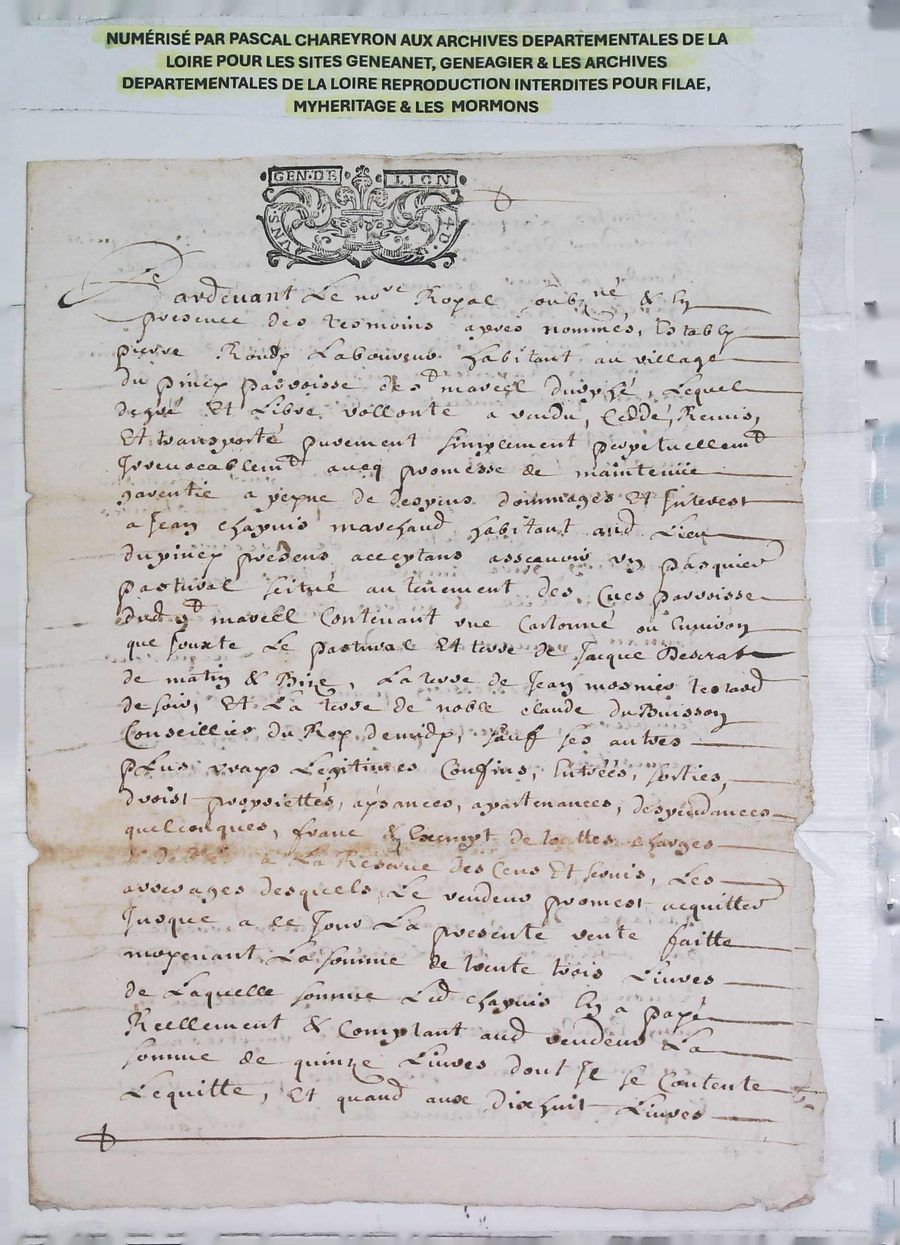 NUMÉRISÉ PAR PASCAL CHAREYRON AUX ARCHIVES DEPARTEMENTALES DE LA
LOIRE POUR LES SITES GENEANET, GENEAGIER & LES ARCHIVES
DEPARTEMENTALES DE LA LOIRE REPRODUCTION INTERDITES POUR FILAE,
MYHERITAGE & LES MORMONS
GEN·DE LION
VN·S· 4·D·
Pardevant Le no.re Royal soubz.né & En
presence des tesmoins apres nommés, Estably
pierre Laboureur habitant au village
du piney parroisse de s.t marcel durphé, Lequel
degré Et Libre vollonté a vendu, Ceddé, Remis,
Et transporté purement simplement perpetuellem.t
Irrevocablem.t avecq promesse de maintenüe
garentie a peyne de despens dommages Et Interest
a Jean chapuis marchand habitant aud Lieu
du piney present acceptant assçavoir un pasquier
pastural scitué au tenement des parroisse
dud s.t marcel Contenant une Cartonné ou Environ
que Jouxte Le pastural Et terre de Jacque
de matin & Bize, La terre de Jean
de soir, Et La terre de noble claude du Buisson
Conseillier du Roy de midy, sauf ses autres
pLus vrays Legitimes Confins, Entrées, sorties,
droist proprietés, aysances, apartenances, despendances
quelconques, franc & Exempt de touttes charges
a La Reserve des Cens Et servis, Les
arrerages desquels Le vendeur promest acquitter
Jusque a ce Jour La presente vente faitte
moyenant La somme de trente trois Livres
de Laquelle somme Led chapuis En a payé
Reellement & Comptant aud vendeur La
somme de quinze Livres dont Il se Contente
Lequitte, Et quand aux Dixhuit Livres